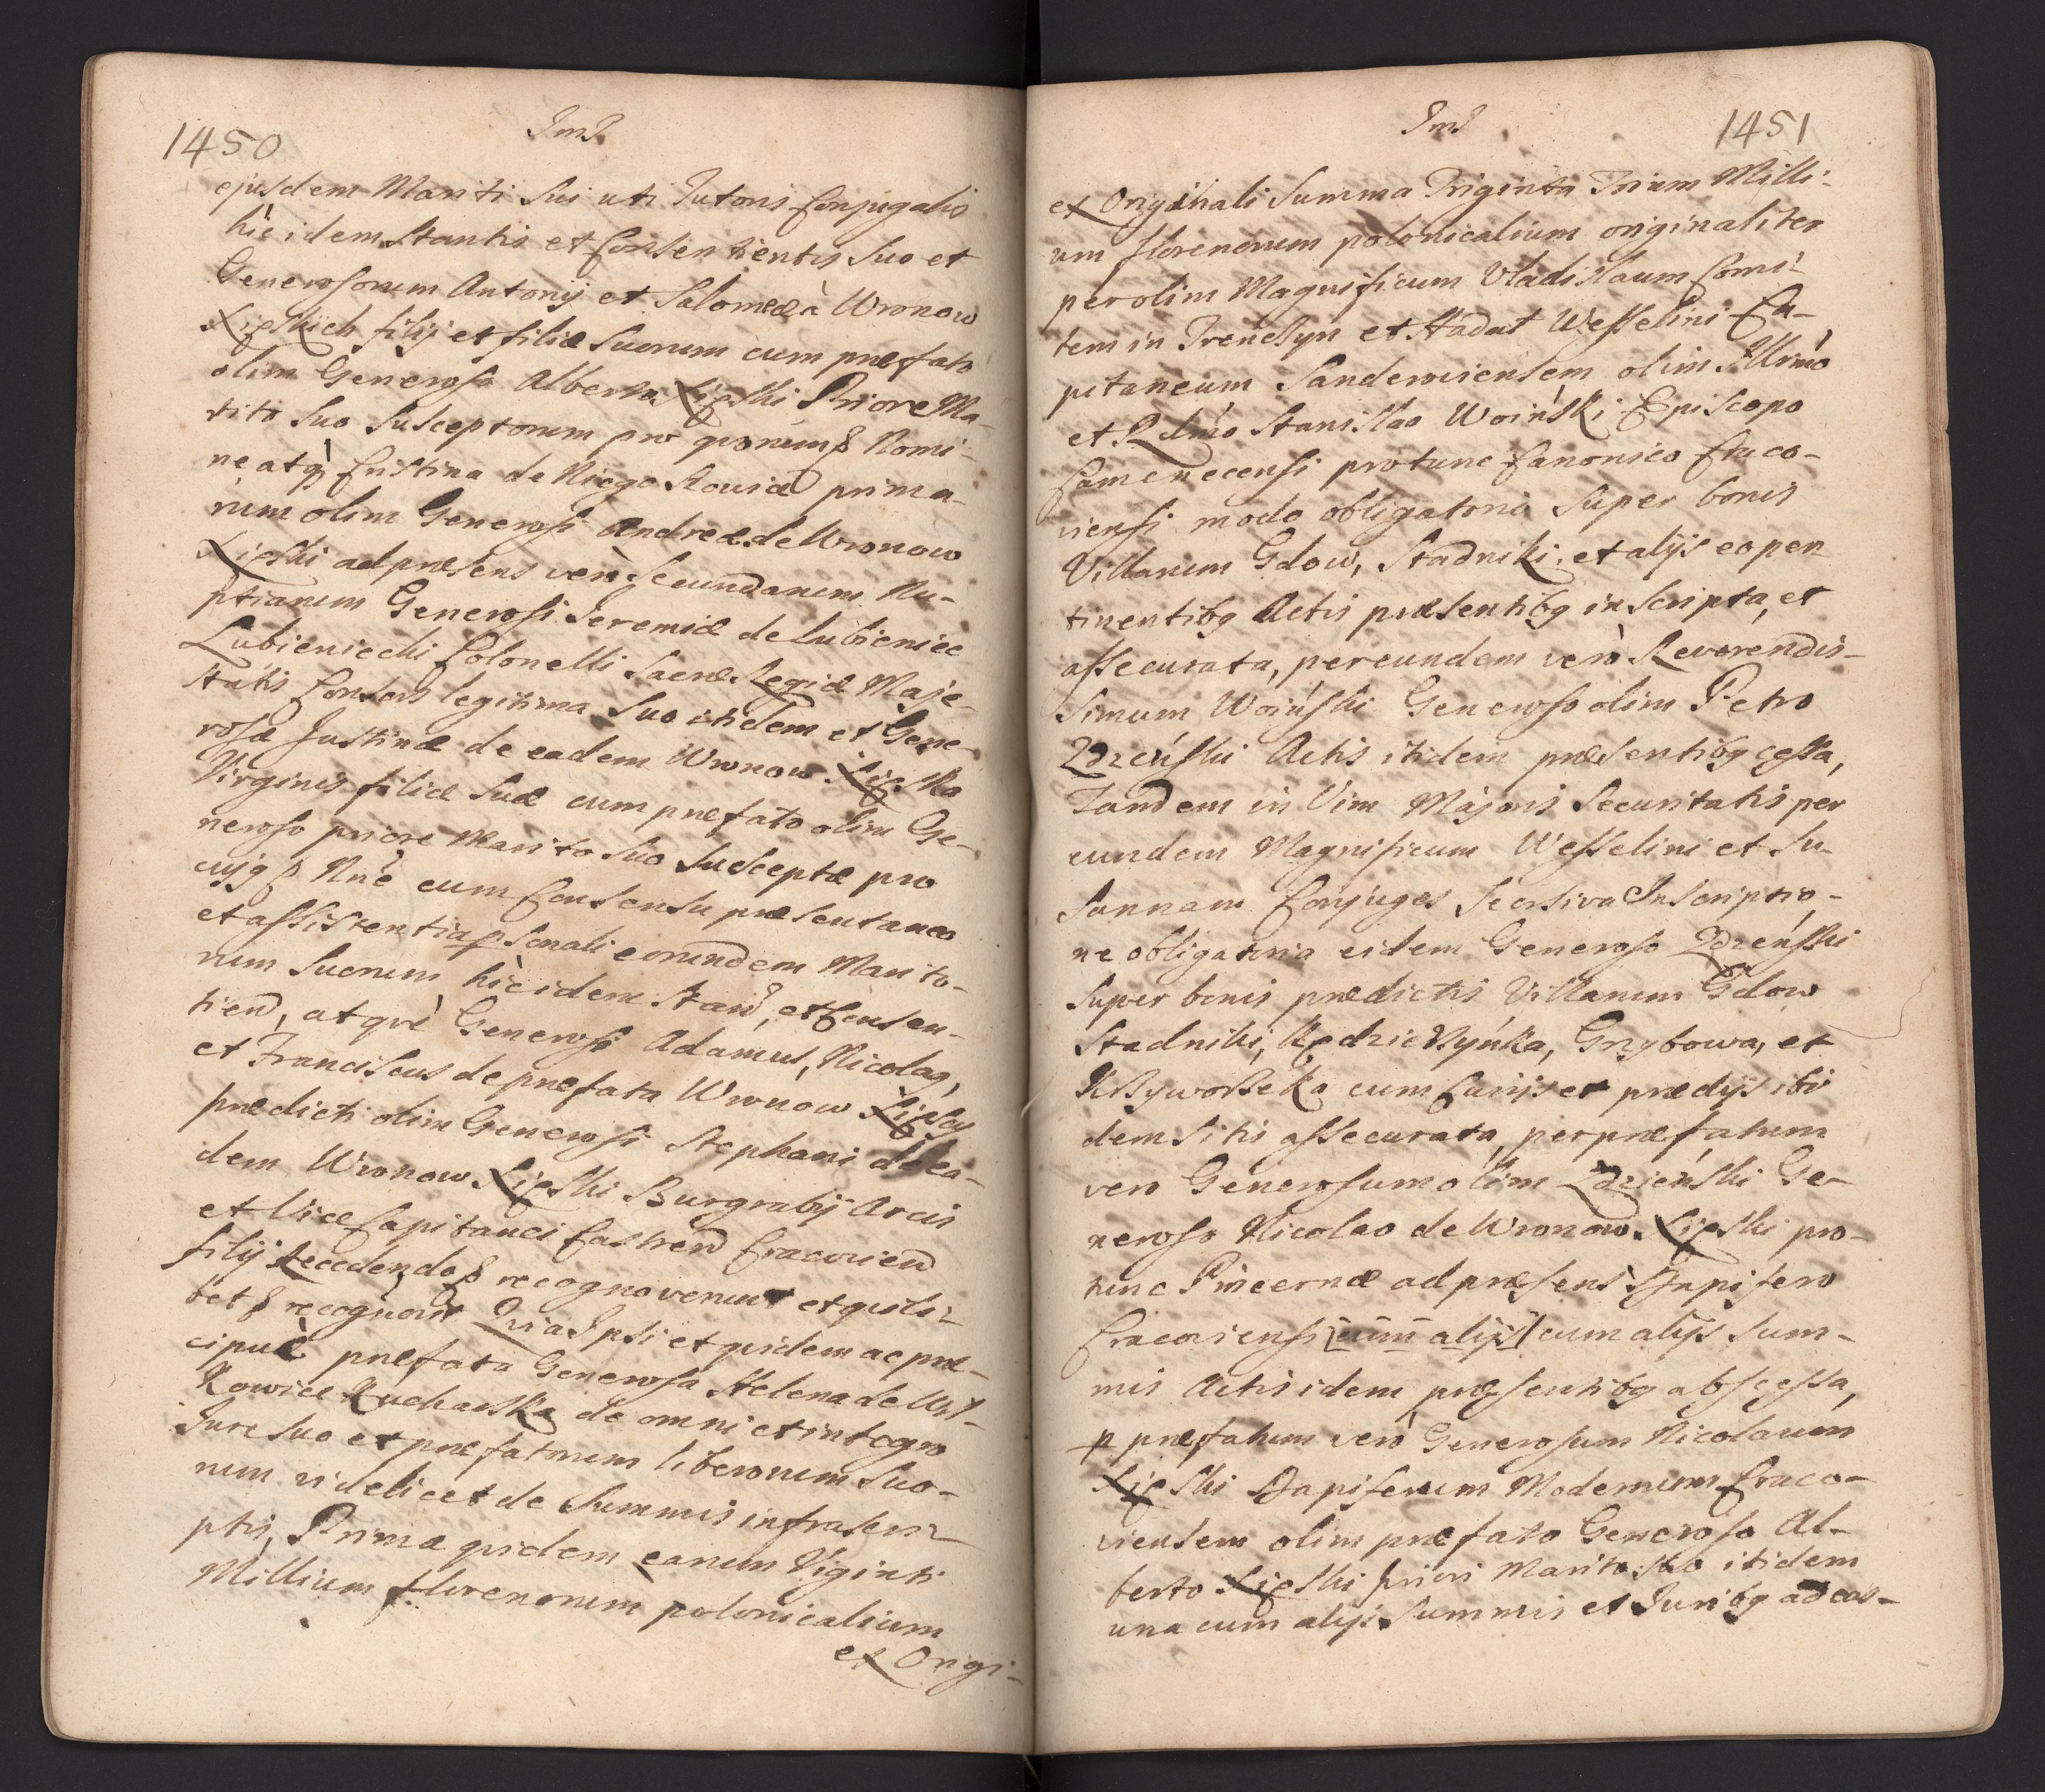 1450
ejusdem Mariti sui uti Tutoris Conjugalis
hic idem Stantis et Consentientis suo et
Generosorum Antonij et Salomeæ à Wronow
Lipskich filij et filiæ suorum cum præfato
olim Generoso Alberto Lipski Priore Ma-
rito suo susceptorum pro quorum Nomi-
ne atq Cristina de Niego Kowice prima-
rum olim Generosi Andreæ de Wronow
Lipski ad præsens verò secundarum Nu-
ptiarum Generosi Jeremiæ de Lubieniec
Lubieniecki Colonelli Sacræ Regiæ Maje-
statis Consors legitima suo itidem et Gene-
rosæ Justinæ de eadem Wronow Lipska
Virginis filiæ suæ cum præfato olim Ge-
neroso priore Marito suo susceptæ pro
cujq Nne cum Consensu præsentaneo
et assistentia psonali eorundem Marito-
rum suorum hic idem Stan, et Consen-
tien, atque Generosi Adamus, Nicolaq,
et Franciscus de præfata Wronow Lipscy
prædicti olim Generosi Stephani de ea-
dem Wronow Lipski Burgrabij Arcis
et Vice Capitanei Castren Cracovien
filij recognoverunt et quili-
bet recognovit Quia Ipsi et quidem ac præ-
cipuè præfata Generosa Helena de Wit-
Kowice Kucharska de omni et integro
Jure suo et præfatorum liberorum suo-
rum videlicet de Summis infrascri-
ptis, Prima quidem earum Viginti
Millium florenorum polonicalium
ex Origi-
1451
ex Originali Summa Triginta Trium Milli-
um florenorum polonicalium originaliter
per olim Magnificum Vladislaum Comi-
tem in Trenchyn et Hadad Wesselini Ca-
pitaneum Sandomiensem olim Illrimo
et Rdmo Stanislao Woiński Episcopo
Camenecensi protunc Canonico Craco-
viensi modo obligatorio super bonis
Villarum Gdow, Stadniki, et alijs eo per
tinentibq Actis præsentibq inscripta, et
assecurata, per eundem verò Reverendis-
simum Woiński Generoso olim Petro
Zdzeński Actis itidem præsentibq cessa,
Tandem in Vim Majoris Securitatis per
eundem Magnificum Wesselini et Su-
sannam Conjuges Seorsiva Inscriptio-
ne obligatoria eidem Generoso Zdzeński
super bonis prædictis Villarum Gdow
Stadniki, Kędzierzynka, Grzybowa, et
Krzyworzeka cum Curijs et prædijs ibi
dem sitis assecurata, per præfatum
vero Generosum olim Zdzieński Ge-
neroso Nicolao de Wronow Lipski pro-
tunc Pincernæ ad præsens Dapifero
Cracoviensi [cum alijs] cum alijs Sum-
mis Actis idem præsentibq abscessa,
p præfatum verò Generosum Nicolaum
Lipski Dapiferum Modernum Craco-
viensem olim præfato Generoso Al-
berto Lipski priori Marito suo itidem
una cum alijs Summis et Juribq ad eas-